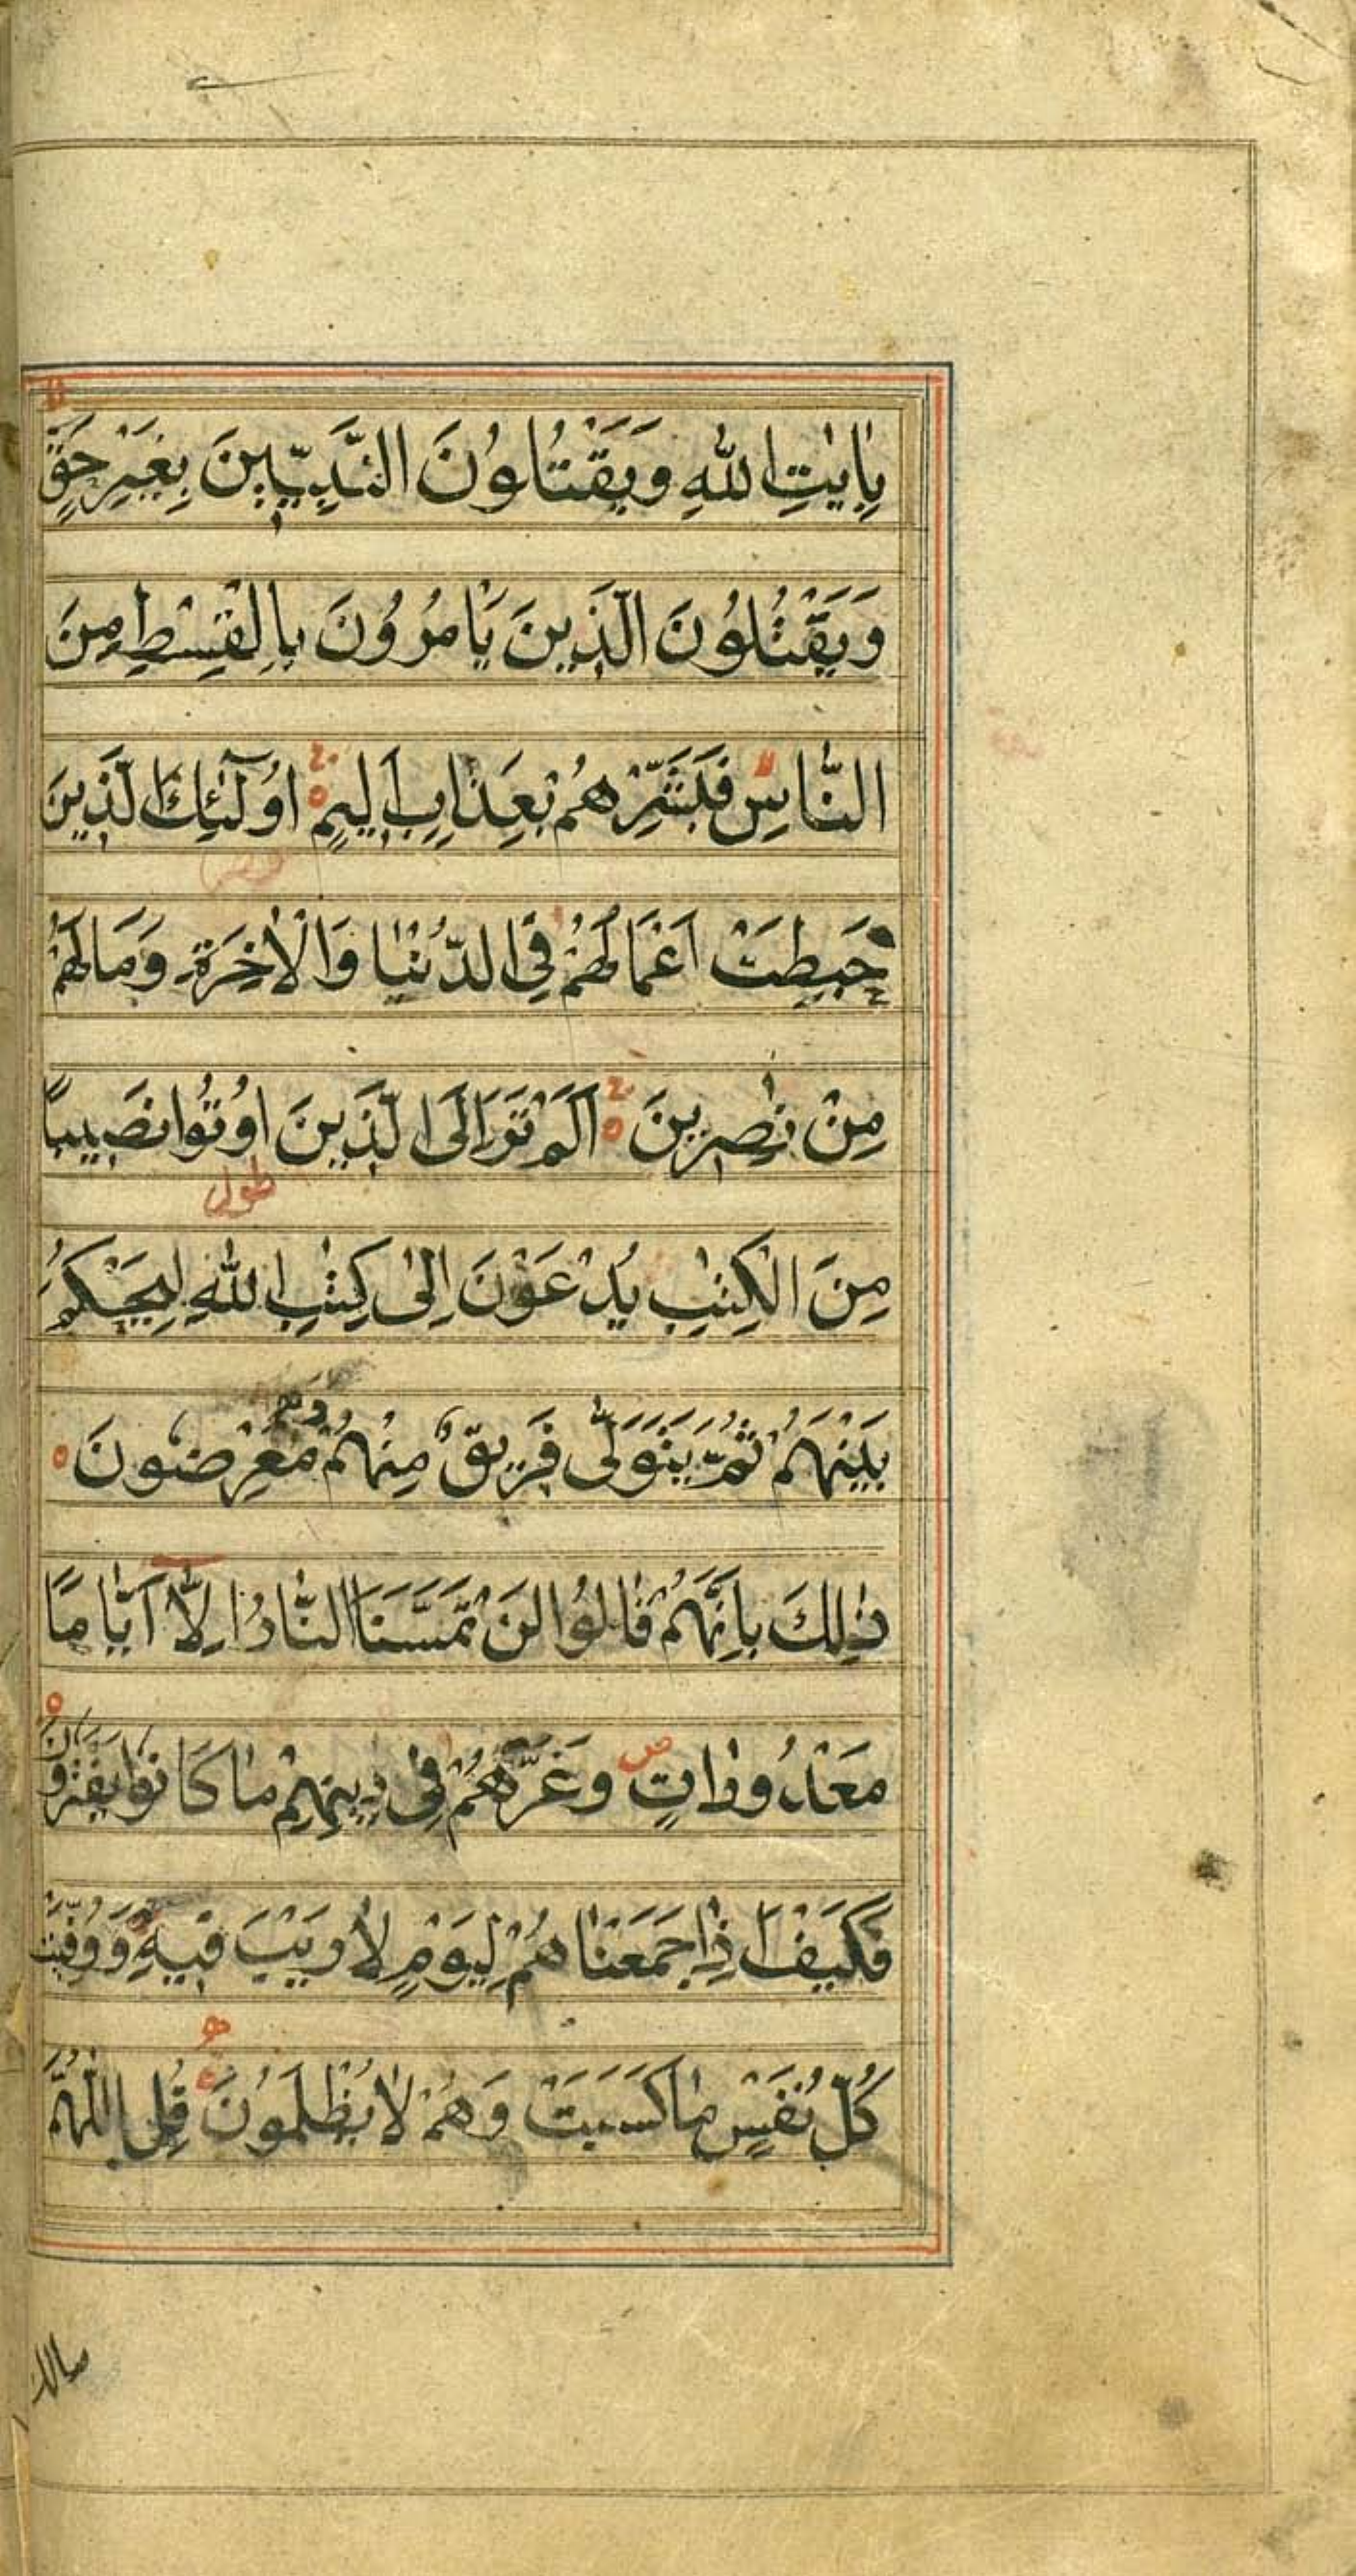 بِاٰيٰتِ اللّٰهِ وَيَقْتُلُوْنَ النَّبِيّٖنَ بِغَيْرِ حَقٍّ
وَيَقْتُلُوْنَ الَّذِيْنَ يَاْمُرُوْنَ بِالْقِسْطِ مِنَ
النَّاسِ فَبَشِّرْهُمْ بِعَذَابٍ اَلِيْمٍ اُولٰٓئِكَ الَّذِيْنَ
حَبِطَتْ اَعْمَالُهُمْ فِي الدُّنْيَا وَالْاٰخِرَةِ وَمَا لَهُمْ
مِنْ نٰصِرِيْنَ اَلَمْ تَرَ اِلَى الَّذِيْنَ اُوْتُوا نَصِيْبًا
طول
مِنَ الْكِتٰبِ يُدْعَوْنَ اِلٰى كِتٰبِ اللّٰهِ لِيَحْكُمَ
بَيْنَهُمْ ثُمَّ يَتَوَلّٰى فَرِيْقٌ مِنْهُمْ وَهُمْ مُعْرِضُوْنَ
ذٰلِكَ بِاَنَّهُمْ قَالُوْا لَنْ تَمَسَّنَا النَّارُ اِلَّا اَيَّامًا
مَعْدُودَاتٍ ص وَغَرَّهُمْ فِى دِيْنِهِمْ مَا كَانُوْا يَفْتَرُوْنَ
فَكَيْفَ اِذَا جَمَعْنَاهُمْ لِيَوْمٍ لَا رَيْبَ فِيْهِ وَوُفِّيَتْ
كُلُّ نَفْسٍ مَا كَسَبَتْ وَهُمْ لَا يُظْلَمُوْنَ قُلِ اللّٰهُمَّ